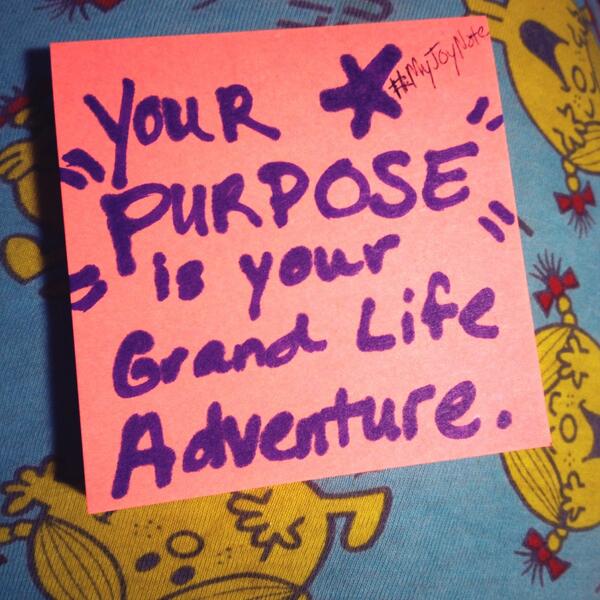 YouR
#MyJoyNote
PURPOSE
is your
Grand Life
Adventure.